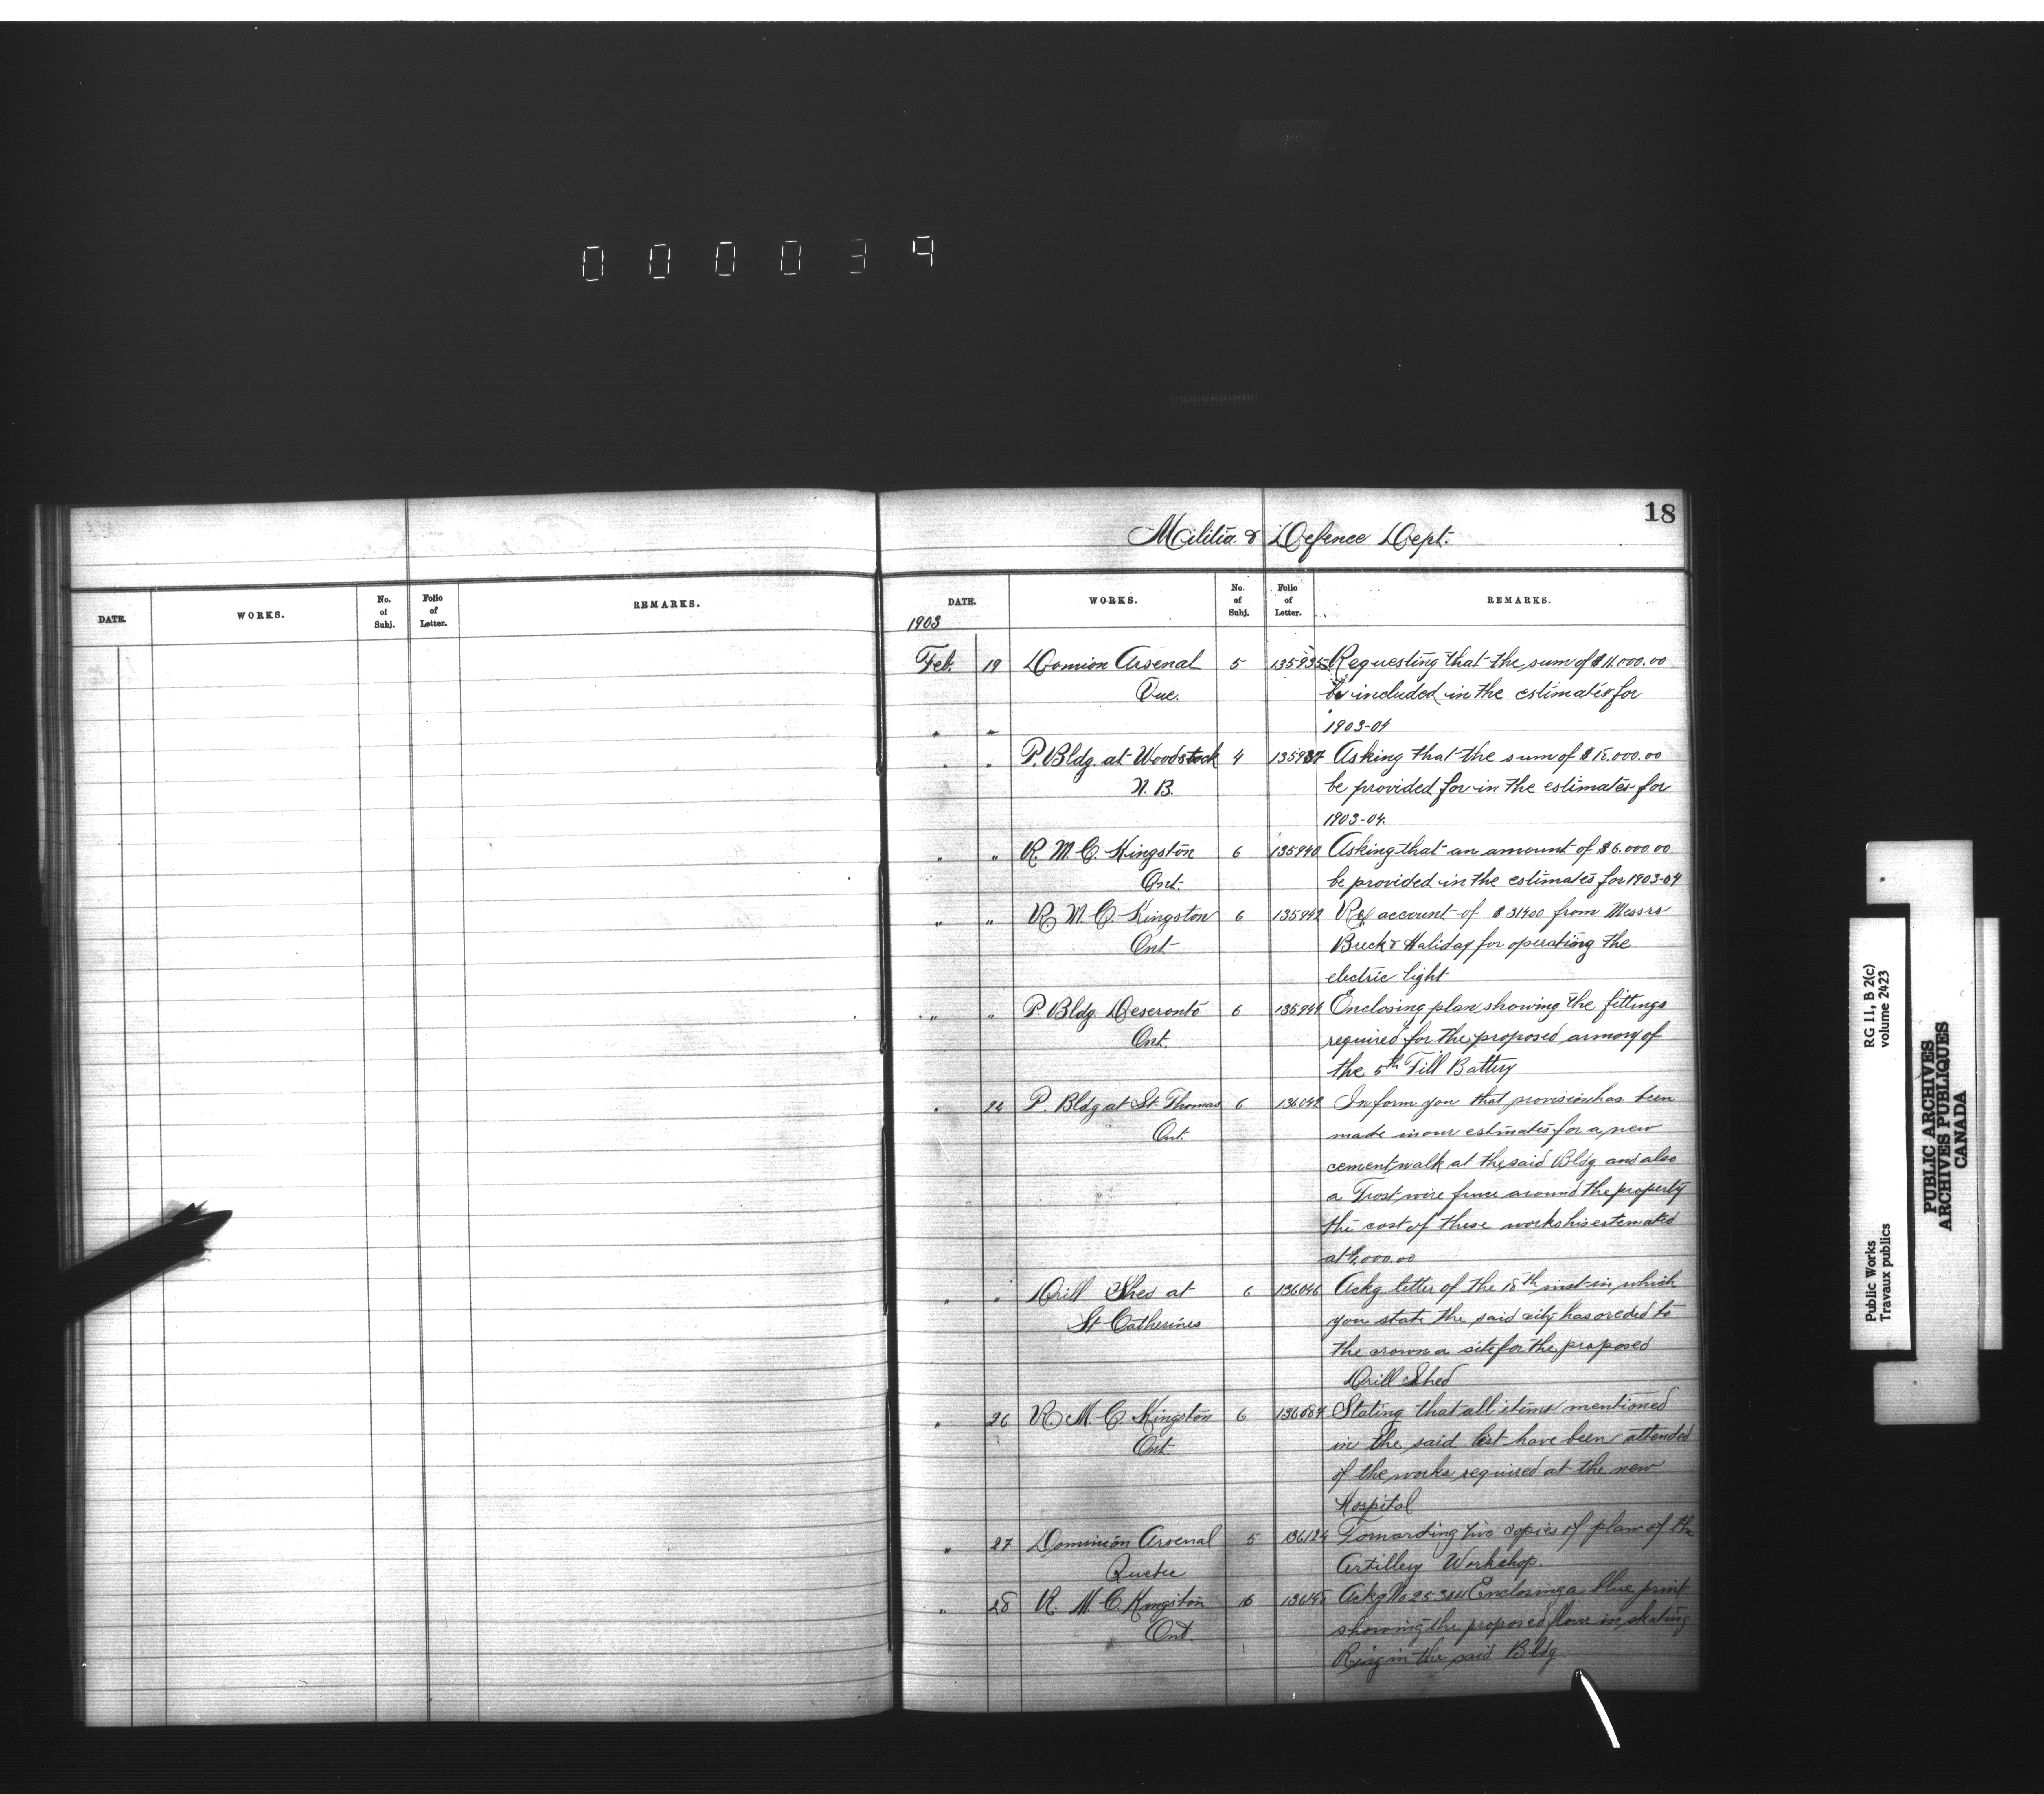 000039
18
Militia & Defence Dept.
DATE. WORKS. No. of Subj. Folio of Letter. REMARKS.
DATE. WORKS. No. of Subj. Folio of Letter. REMARKS.
1903
Feb. 19 Domion Arsenal 5 135935 Requesting that the sum of $11.000.00
Que. be included in the estimates for
" " 1903-04
" " P. Bldg. at Woodstock 4 135937 Asking that the sum of $15.000.00
N. B. be provided for in the estimates for
1903-04.
" " R. M. C. Kingston 6 135940 Asking that an amount of $6.000.00
Ont. be provided in the estimates for 1903-04
" " R. M. C. Kingston 6 135942 Re account of $31400 from Messrs
Ont Breck & Haliday for operating the
electric light
" " P. Bldg. Deseronto 6 135944 Enclosing plan showing the fittings
Ont. required for the proposed armory of
the 5th Fill Battery
" 24 P. Bldg at St. Thomas 6 136042 Inform you that provision has been
Ont. made in our estimates for a new
cement walk at the said Bldg and also
a Frost wire fence around the property
the cost of these works is estemated
at 000.00
" " Drill Shed at 6 136046 Ackg letter of the 18th inst in which
St Catherines you state the said city has ceded to
the crown a site for the proposed
Drill Shed
" 26 R. M. C. Kingston 6 136087 Stating that all items mentioned
Ont. in the said list have been attended
of the works required at the new
Hospital
" 27 Dominion Arsenal 5 136124 Forwarding two copies of plan of the
Quebec Artillery Workshop.
" 28 R. M. C. Kingston 6 136145 Ackg No 25304 Enclosing a blue print
Ont. showing the proposed floor in skating
Ring in the said Bldg.
RG 11, B 2(c)
volume 2423
Public Works
Travaux publics
PUBLIC ARCHIVES
ARCHIVES PUBLIQUES
CANADA